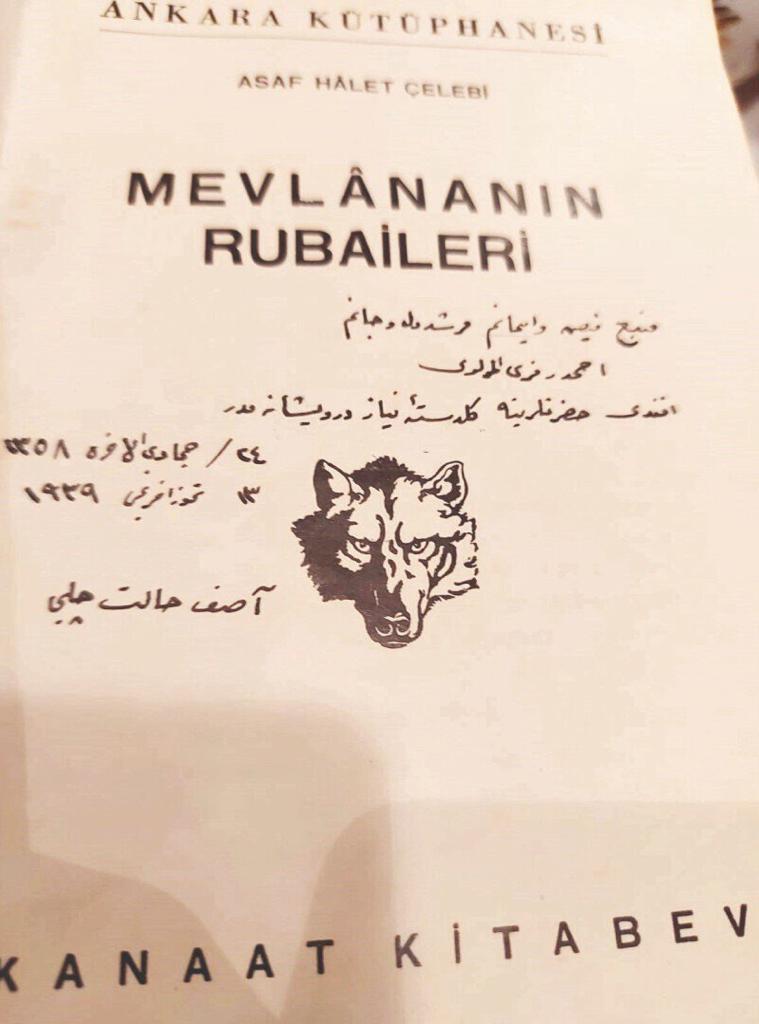 ANKARA KÜTÜPHANESİ
ASAF HÂLET ÇELEBİ
MEVLÂNANIN
RUBAİLERİ
منبع فيض و ايمانم مرشد دل و جانم
احمد رمزی المولوی
افندی حضرتلرينه گلدستۀ نياز درويشانه مدر
٢٤/ جمادي الاخره ١٣٥٨
١٣ تموز افرنجی ١٩٣٩
آصف حالت چلبی
KANAAT KİTABEV